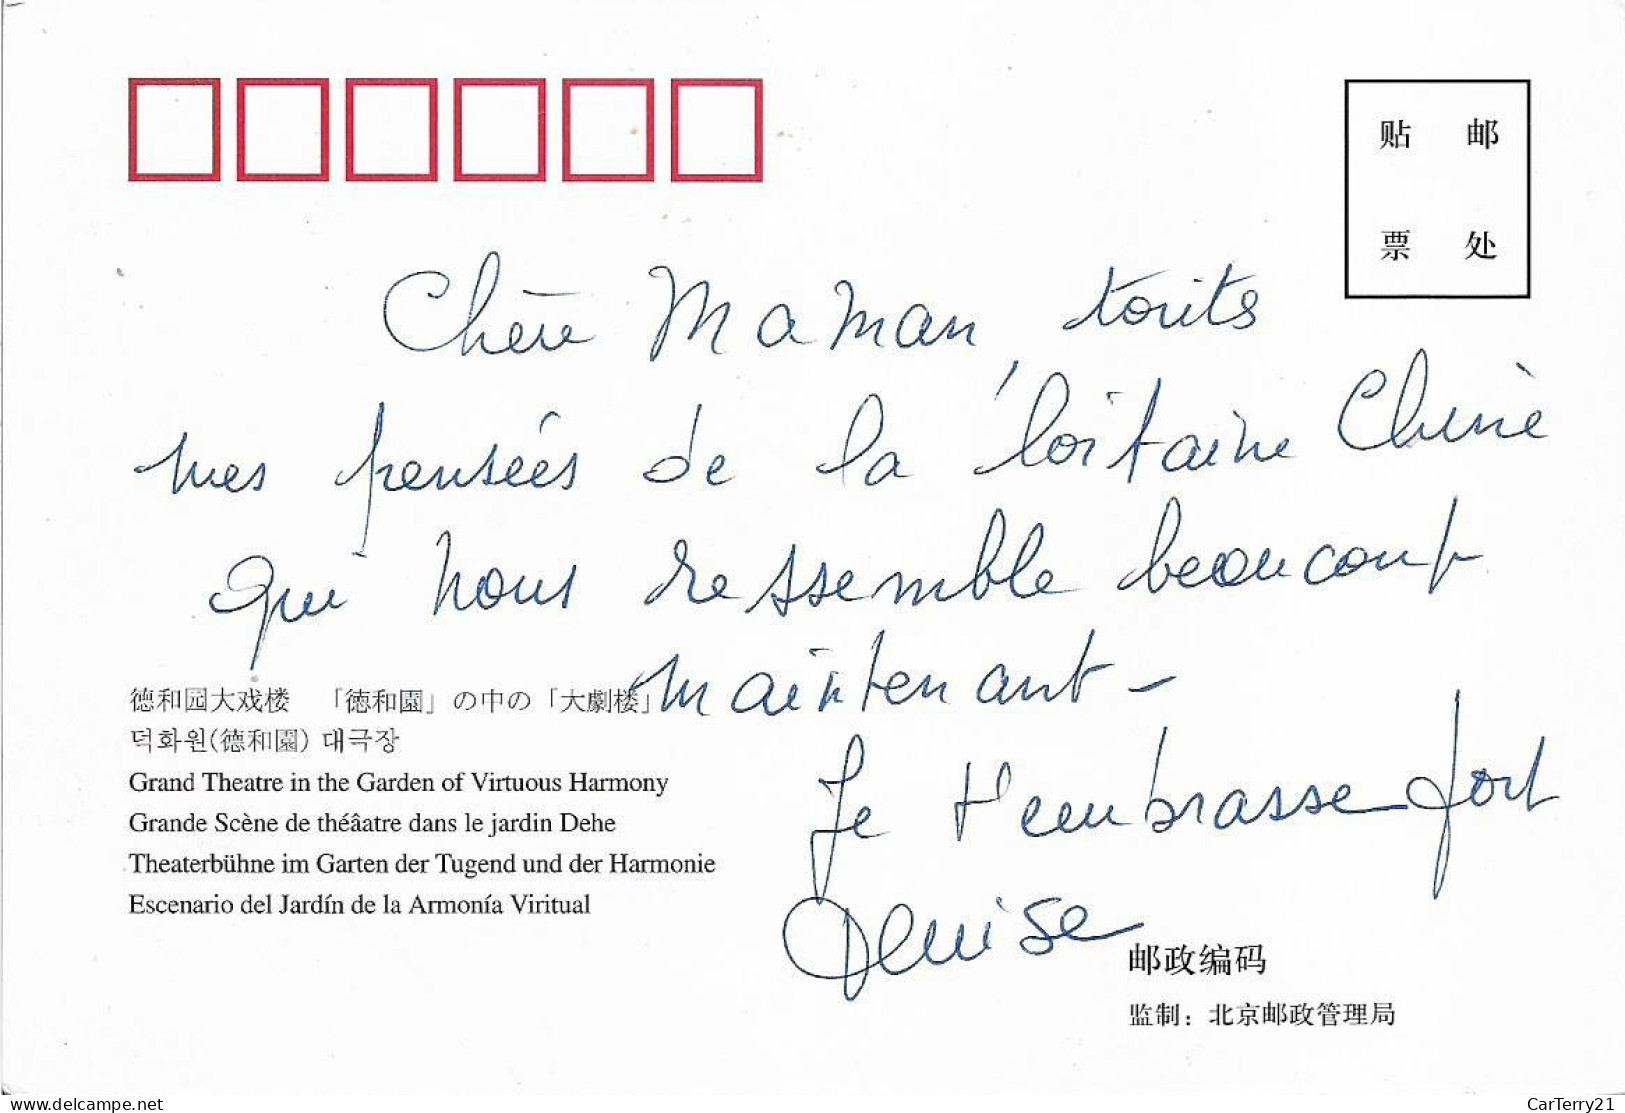 贴 邮
票 处
Chère Maman, toutes
mes pensées de la lointaine Chine
qui nous ressemble beaucoup
maintenant -
Je t'embrasse fort
Denise
德和园大戏楼 「徳和園」の中の「大劇楼」
덕화원(德和園) 대극장
Grand Theatre in the Garden of Virtuous Harmony
Grande Scène de théâatre dans le jardin Dehe
Theaterbühne im Garten der Tugend und der Harmonie
Escenario del Jardín de la Armonía Viritual
邮政编码
监制：北京邮政管理局
www.delcampe.net
CarTerry21